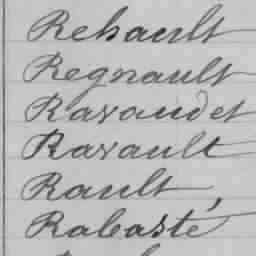 Rehault
Regnault
Ravaudet
Ravault
Rault
Rabasté